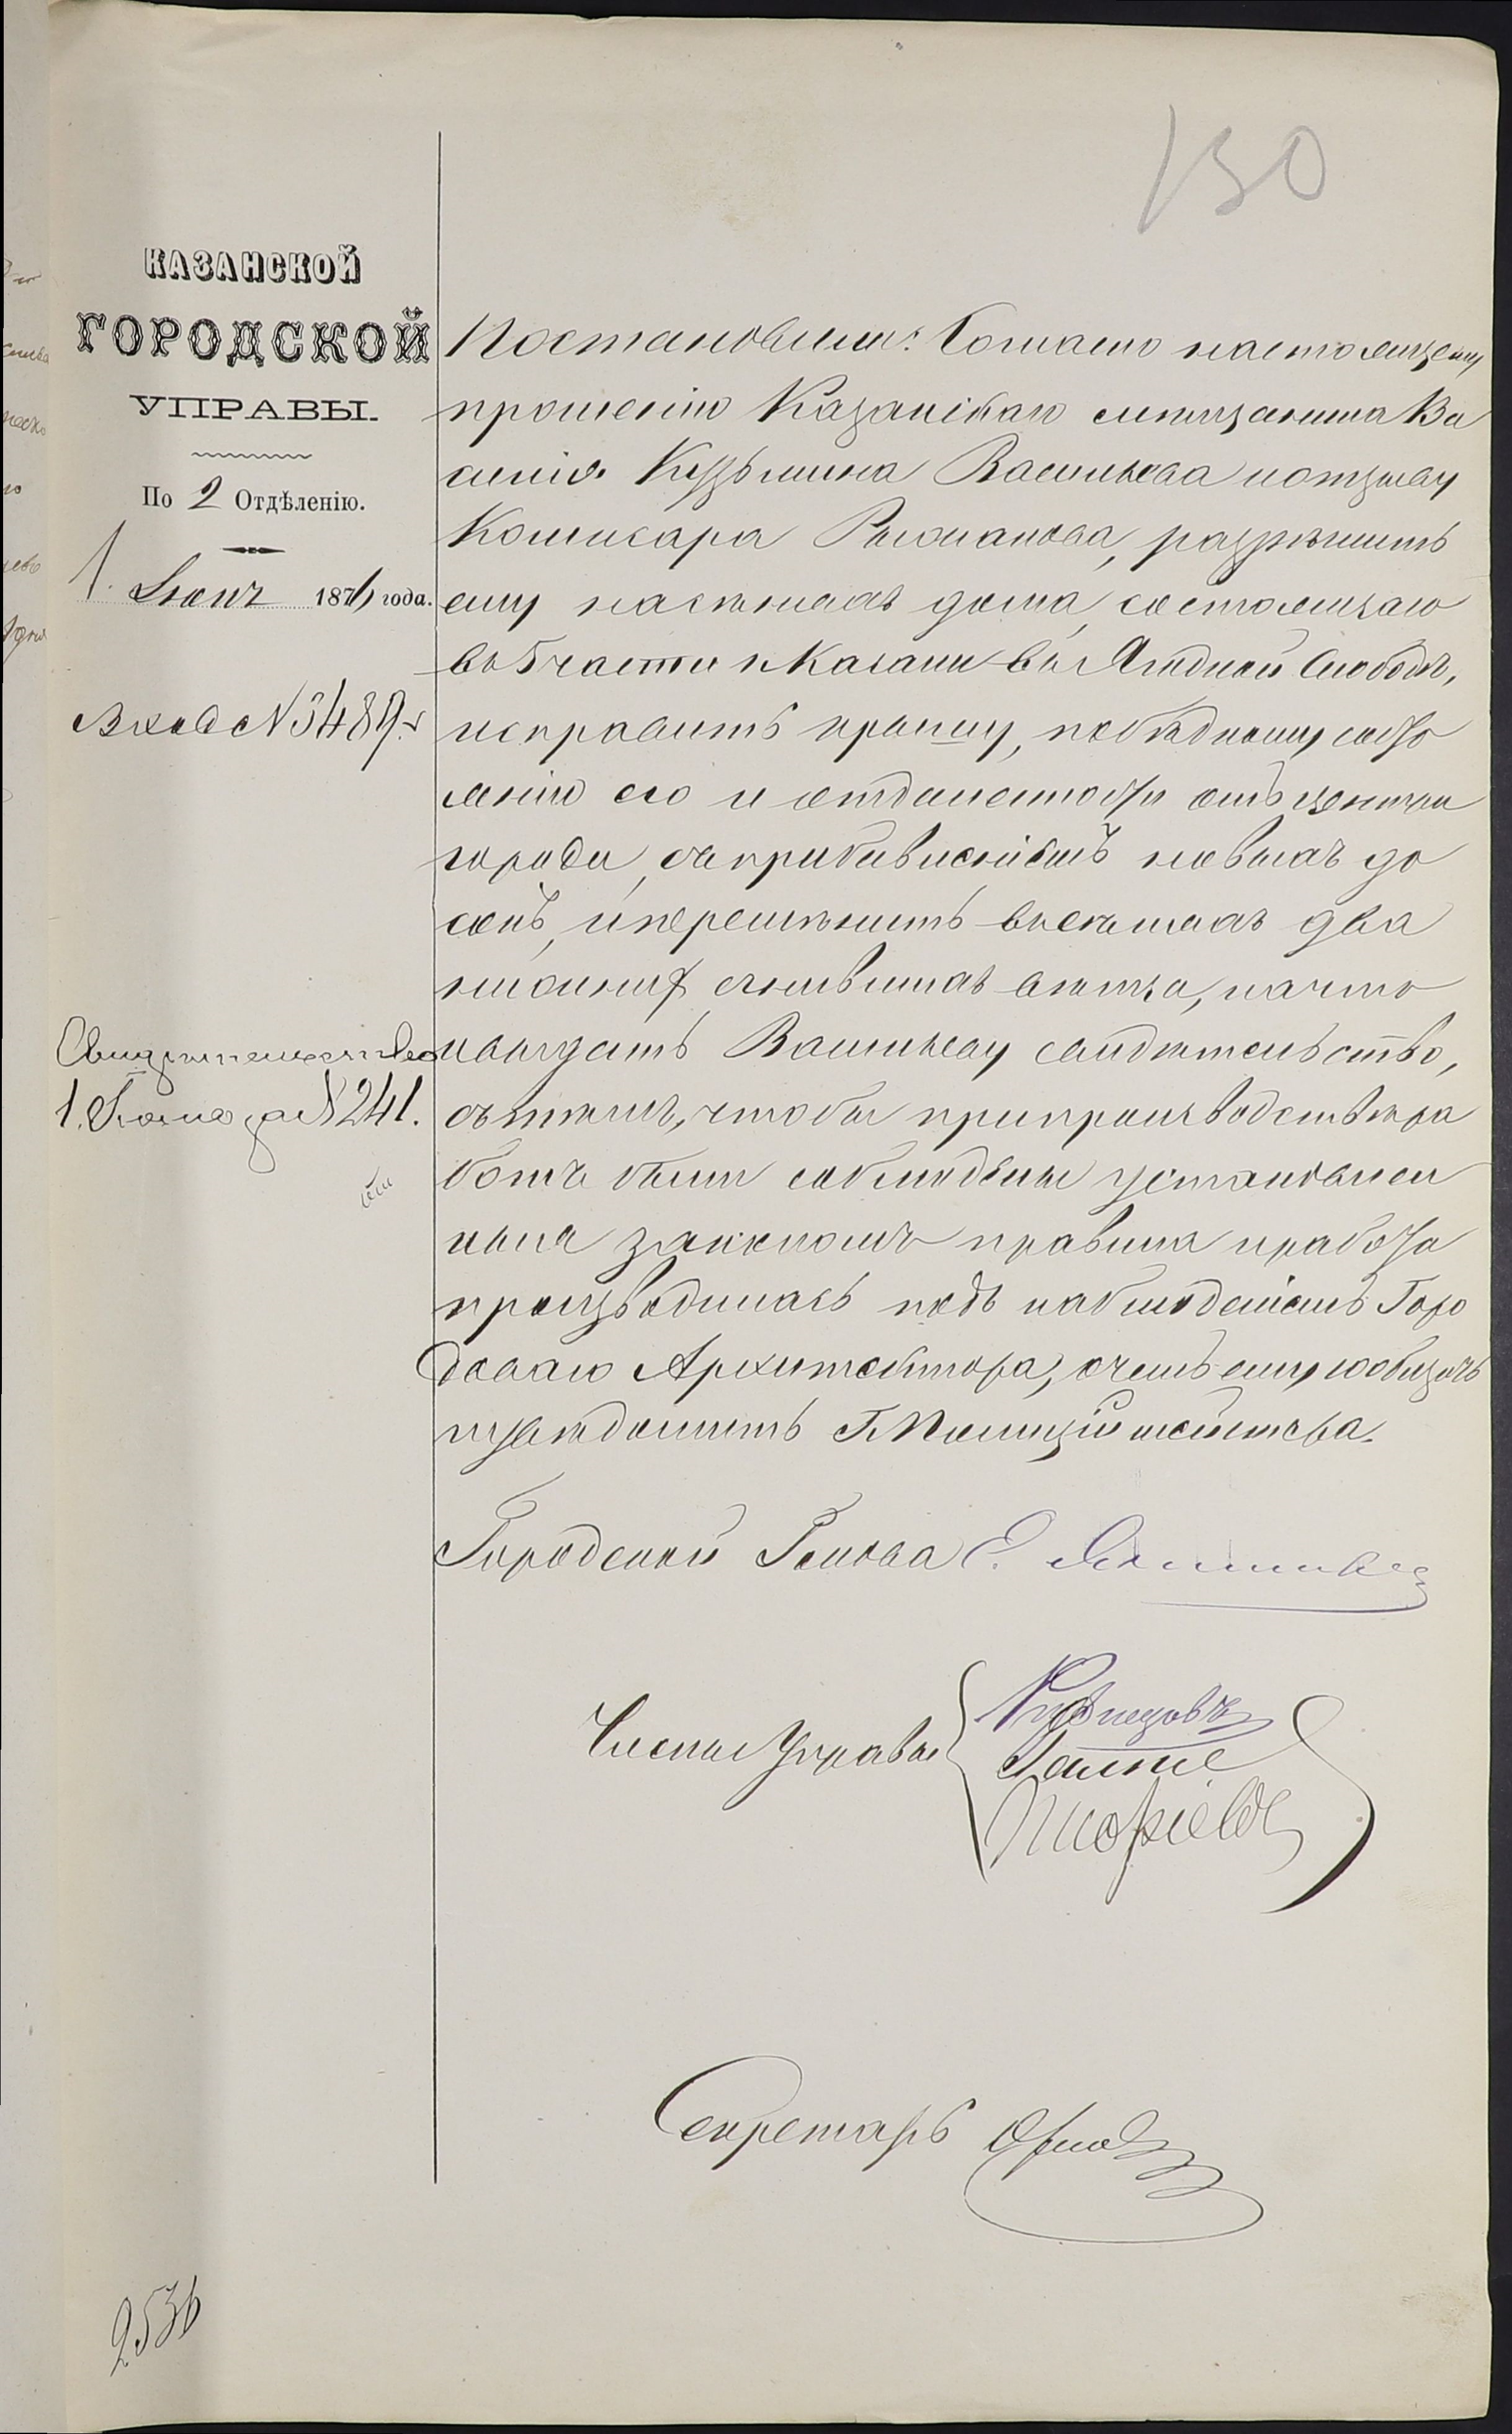 130
КАЗАНСКОЙ
ГОРОДСКОЙ
УПРАВЫ.
По 2 Отдѣленію.
1. Іюня 1876 года.
Вход № 3489.
Свидѣтельство
1. Іюня за № 241.
Постановили: Согласно настоящему
прошенію Казанскаго мѣщанина Ва
силія Кузьмина Васильева и отзыву
Комисара Романова, разрѣшить
ему на домѣ, состоящаго
въ 5 части г. Казани въ Ягодной Слободѣ,
исправить крышу, по бѣдному состо
янію его и отдаленности отъ центра
города, съ прибавленіемъ новыхъ до
сокъ, и перемѣнить въ стѣнахъ два
нижнихъ сгнившихъ вѣнца, на что
и выдать Васильеву свидѣтельство,
съ тѣмъ, чтобы при производствѣ ра
ботъ были соблюдены установлен
ныя закономъ правила и работа
производилась подъ наблюденіемъ Горо
доваго Архитектора, о чемъ ему сообщить
и увѣдомить Г. Полиціймейстера.
Городской Голова Е.
Члены Управы
Кузнецовъ
Секретарь
2536